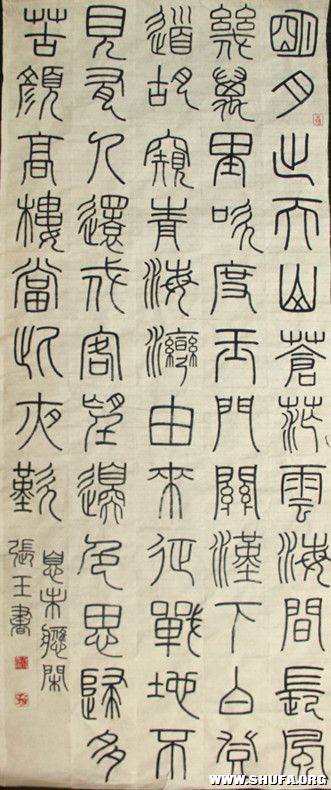 明月出天山蒼茫雲海間長風
幾萬里吹度玉門關漢下白登
道胡窺青海灣由來征戰地不
見有人還戍客望邊色思歸多
苦顏高樓當此夜歎
息未應閑
張玉書
WWW.SHUFA.ORG